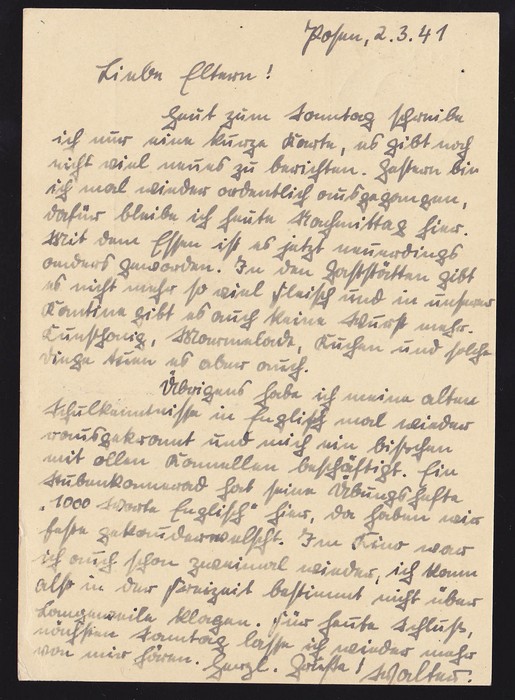 Posen, 2.3.41
Liebe Eltern!
Heut zum Sonntag schreibe
ich nur eine kurze Karte, es gibt noch
nicht viel neues zu berichten. Gestern bin
ich mal wieder ordentlich ausgegangen,
dafür bleibe ich heute Nachmittag hier.
Mit dem Essen ist es jetzt neuerdings
anders geworden. In den Gaststätten gibt
es nicht mehr so viel Fleisch und in unserer
Kantine gibt es auch keine Wurst mehr.
Kunsthonig, Marmelade, Kuchen und solche
Dinge tuen es aber auch.
Übrigens habe ich meine alten
Schulkenntnisse in Englisch mal wieder
rausgekramt und mich ein bischen
mit ollen Kamellen beschäftigt. Ein
Stubenkamerad hat seine Übungshefte
"1000 Worte Englisch" hier, da haben wir
feste gekauderwelscht. Im Kino war
ich auch schon zweimal wieder, ich kann
also in der Freizeit bestimmt nicht über
Langeweile klagen. Für heute Schluß,
nächsten Sonntag lasse ich wieder mehr
von mir hören. Herzl. Grüße! Walter.